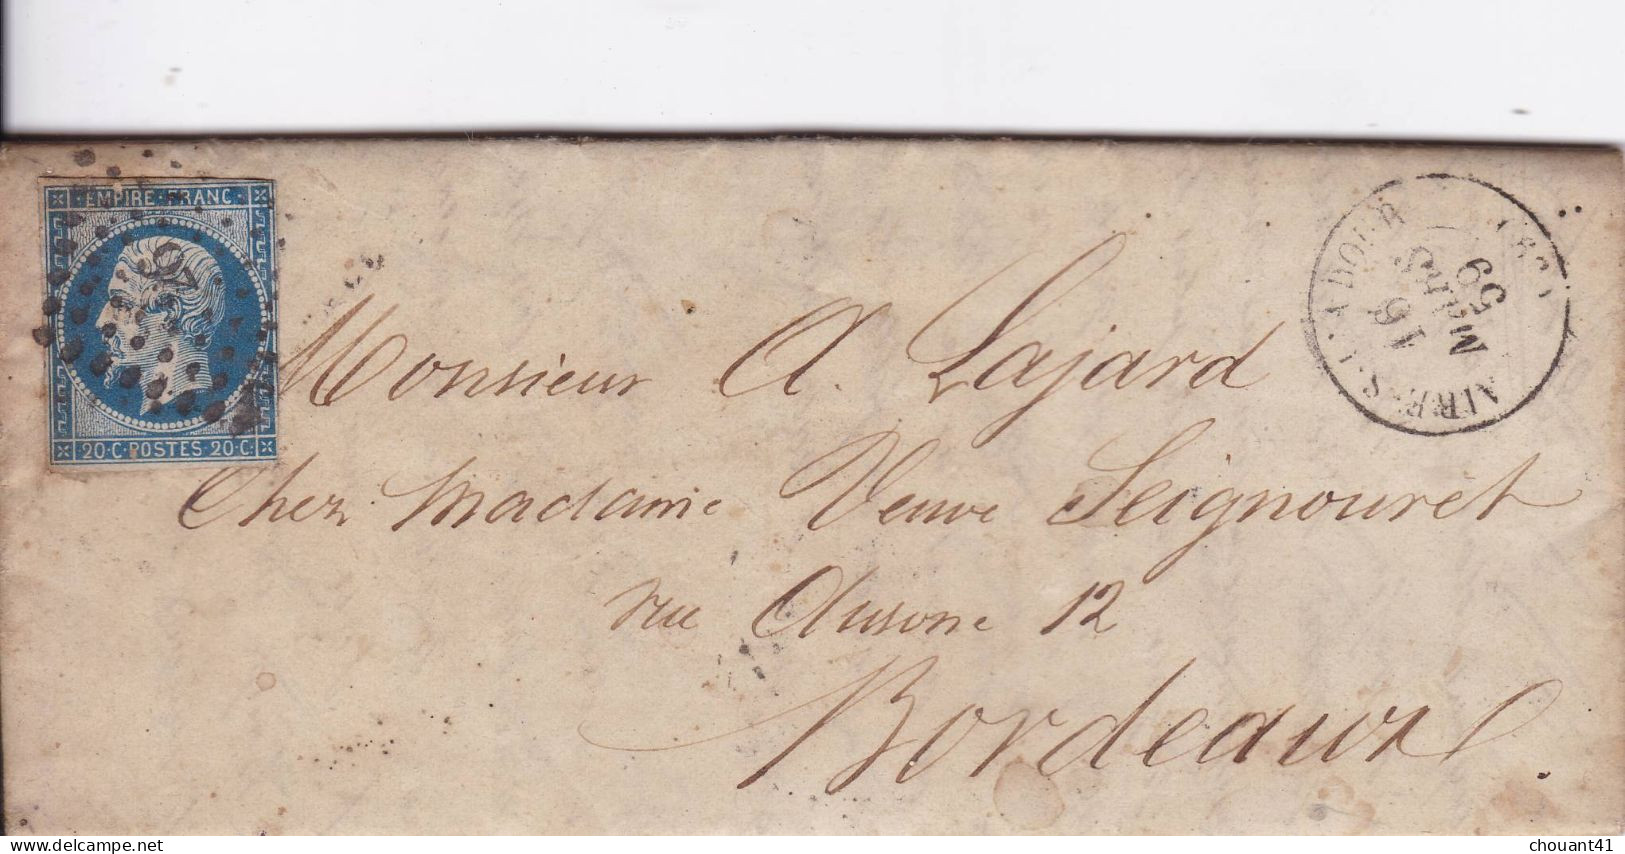 EMPIRE FRANC
20·C·POSTES 20·C·
Monsieur A. Lajard
Chez Madame Veuve Seignouret
rue Ausone 12
Bordeaux
16
MARS
59
delcampe.net
chouant41